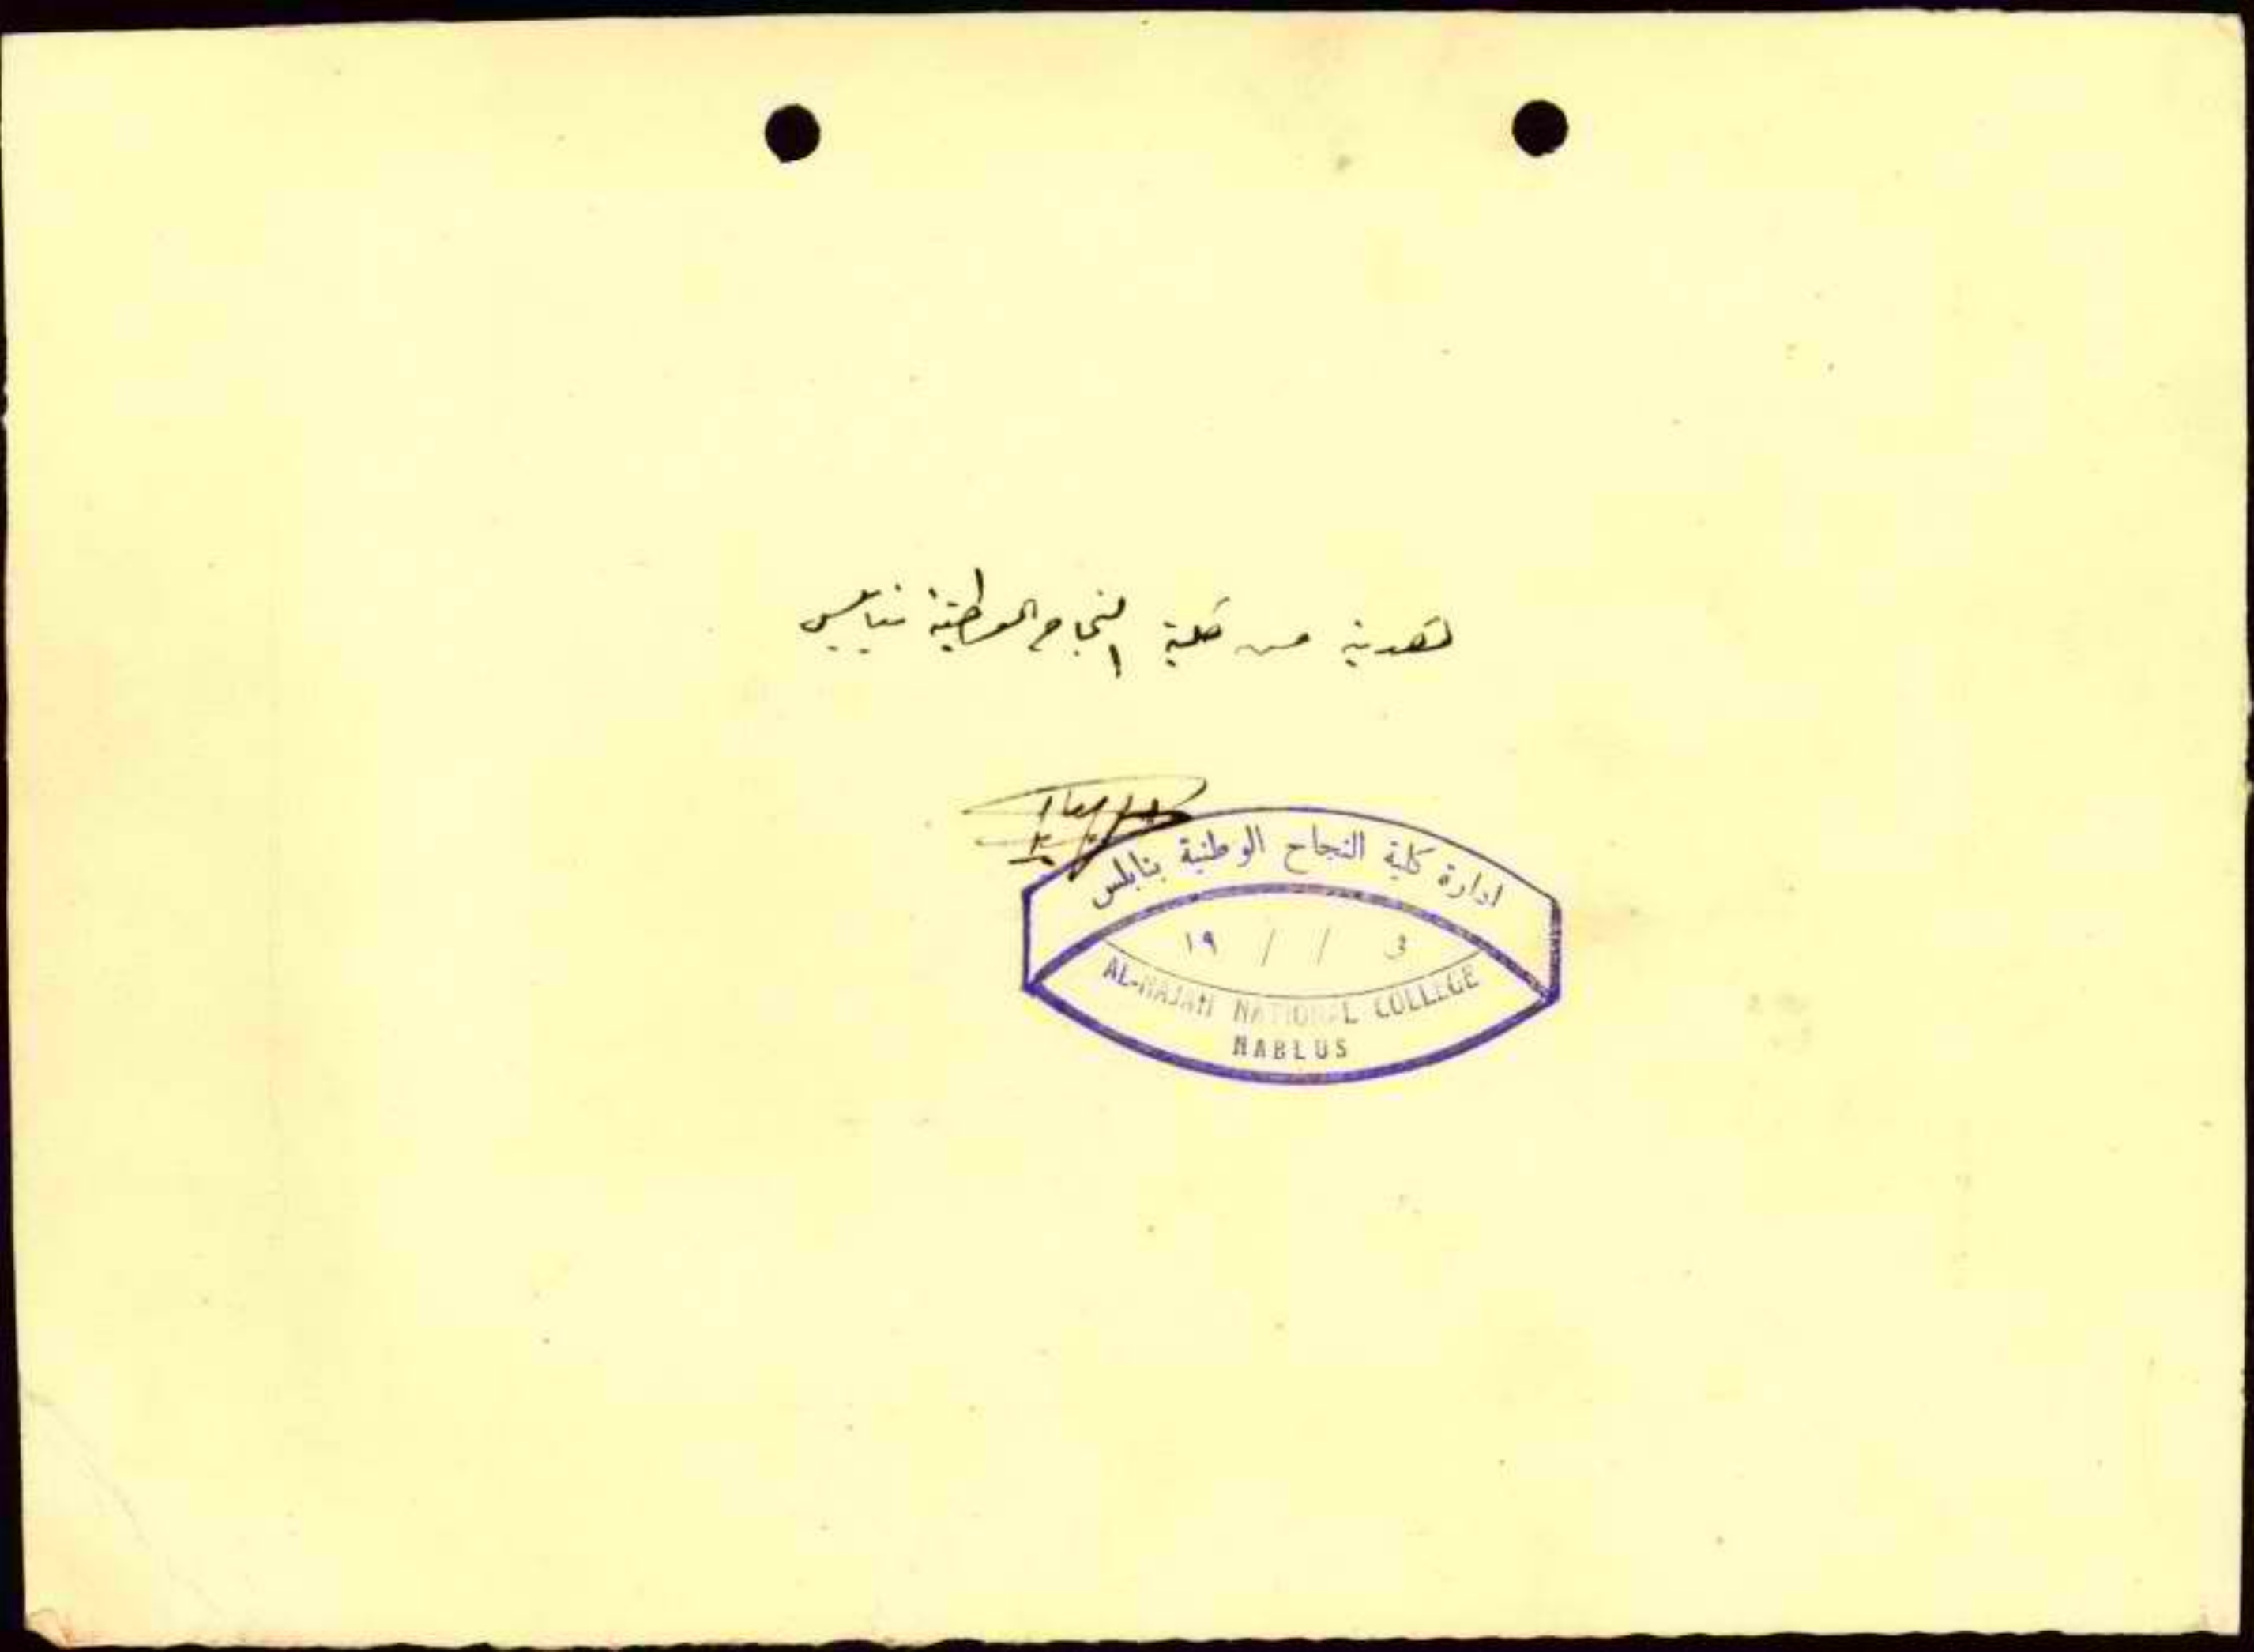 هدية من كلية النجاح الوطنية بنابلس
ادارة كلية النجاح الوطنية بنابلس
في / / ١٩
AL-NAJAH NATIONAL COLLEGE
NABLUS